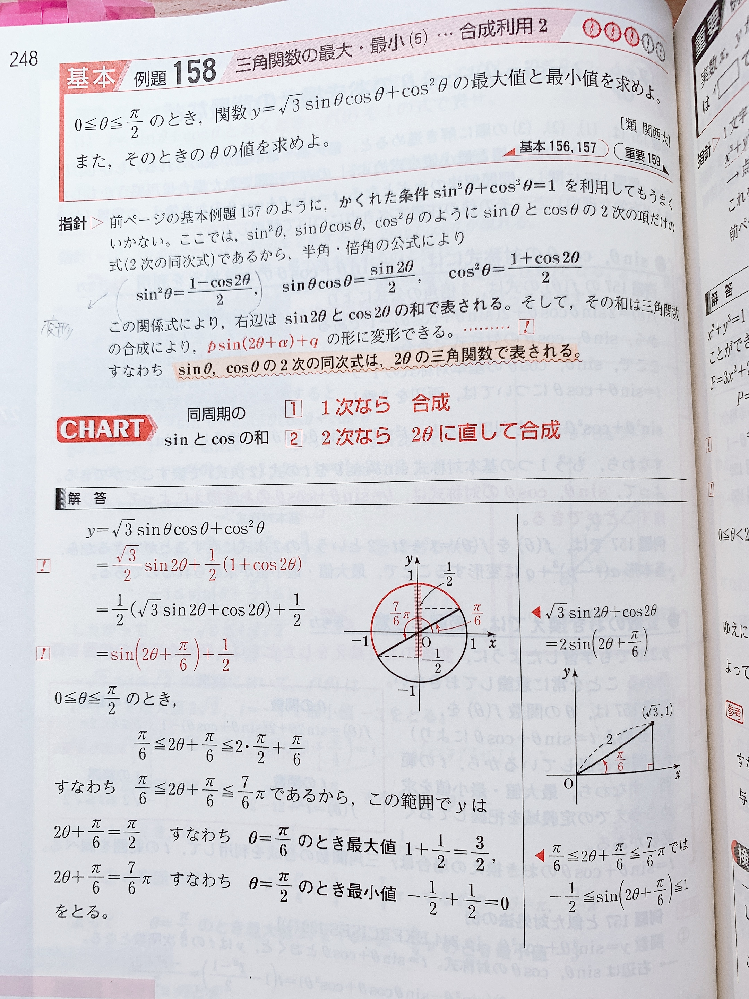 248
基本 例題 158 三角関数の最大・最小(5) … 合成利用2
0≦θ≦π/2 のとき,関数 y=√3 sinθcosθ+cos²θ の最大値と最小値を求めよ。
また,そのときのθの値を求めよ。
〔類 関西大〕
基本 156,157 重要 159
指針 > 前ページの基本例題157のように,かくれた条件 sin²θ+cos²θ=1 を利用してもうまく
いかない。ここでは,sin²θ, sinθcosθ, cos²θ のように sinθ と cosθ の2次の項だけの
式(2次の同次式)であるから,半角・倍角の公式により
sin²θ=(1-cos2θ)/2, sinθcosθ=sin2θ/2, cos²θ=(1+cos2θ)/2
変形
この関係式により,右辺は sin2θ と cos2θ の和で表される。そして,その和は三角関数
の合成により,psin(2θ+α)+q の形に変形できる。……… !
すなわち sinθ, cosθ の2次の同次式は,2θの三角関数で表される。
CHART 同周期の sin と cos の和
1 1次なら 合成
2 2次なら 2θに直して合成
解答
y=√3 sinθcosθ+cos²θ
! =√3/2 sin2θ+1/2(1+cos2θ)
=1/2(√3 sin2θ+cos2θ)+1/2
! =sin(2θ+π/6)+1/2
0≦θ≦π/2 のとき,
π/6≦2θ+π/6≦2・π/2+π/6
すなわち π/6≦2θ+π/6≦7/6π であるから,この範囲で y は
2θ+π/6=π/2 すなわち θ=π/6 のとき最大値 1+1/2=3/2,
2θ+π/6=7/6π すなわち θ=π/2 のとき最小値 -1/2+1/2=0
をとる。
y
1
1/2
7/6π
π/6
-1
O
1
x
-1/2
-1
◀√3 sin2θ+cos2θ
=2sin(2θ+π/6)
y
(√3, 1)
2
π/6
O
x
◀π/6≦2θ+π/6≦7/6π では
-1/2≦sin(2θ+π/6)≦1
重要
指針 >
1文字
解答
x²+y²=1
ことができ